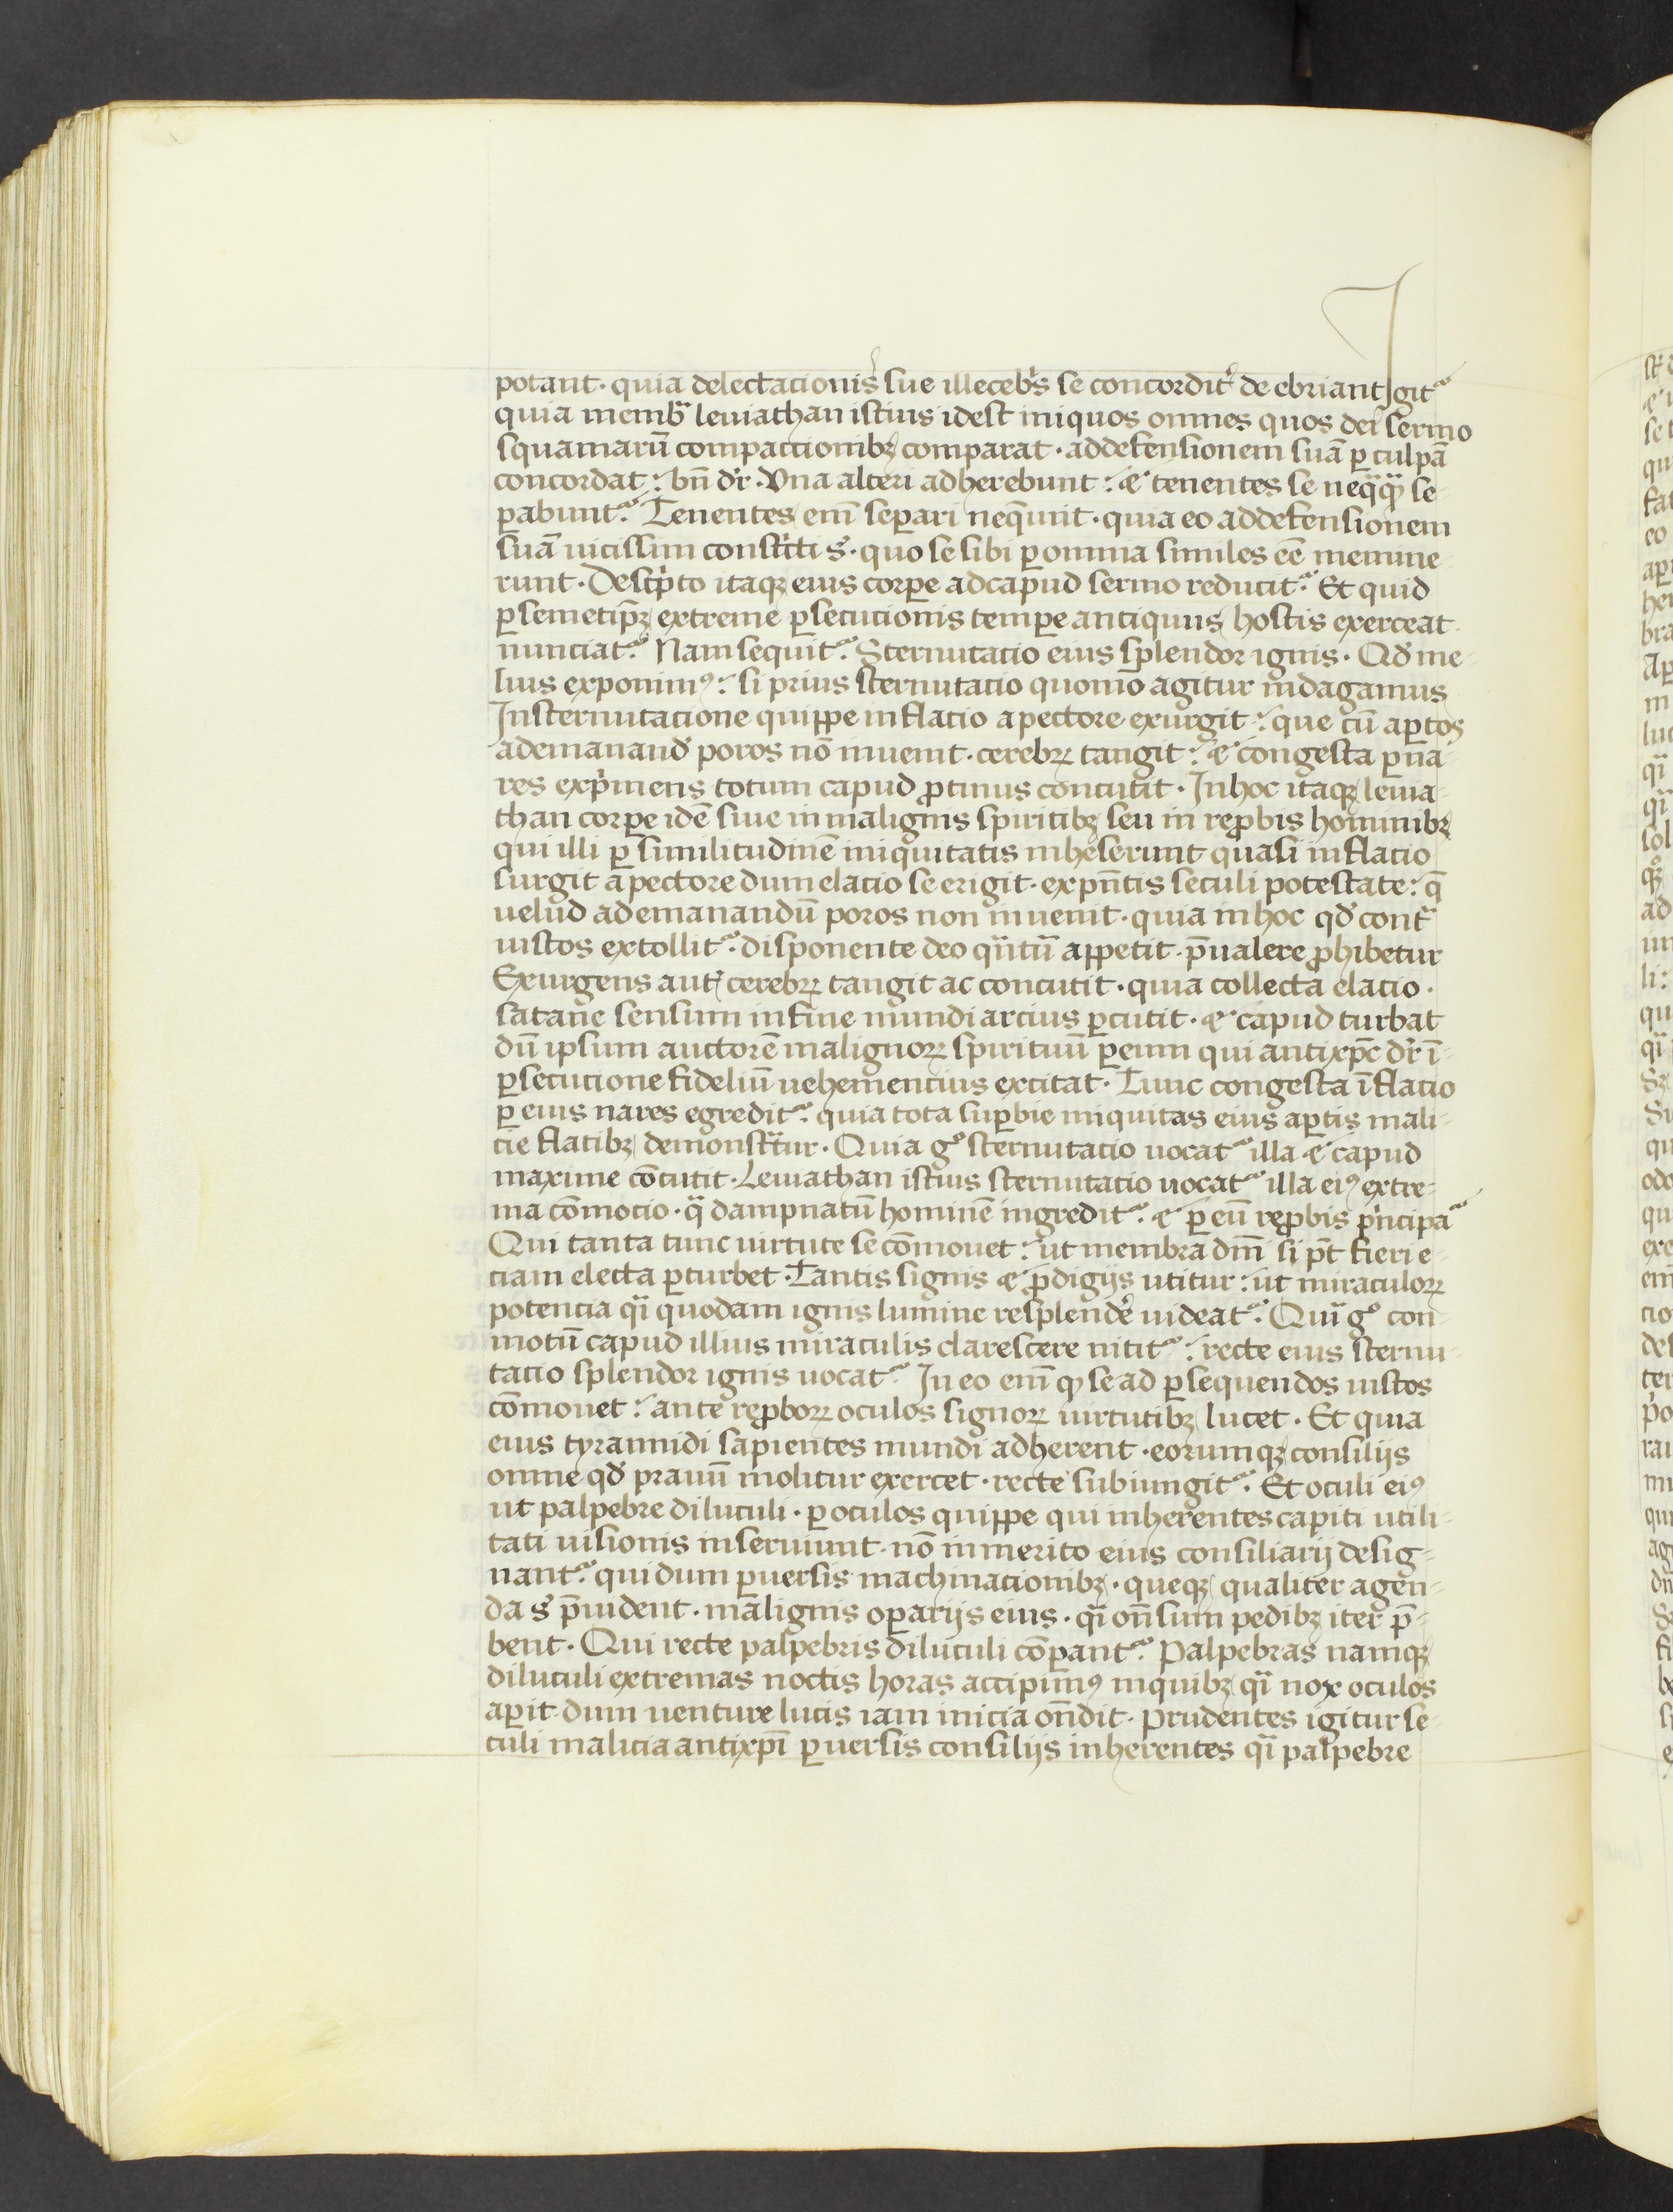 potant· quia delectacionis sue illecebͥs se concorditͬ de ebriant Igit᷑
quia membͣ leuiathan istius idest iniquos omnes quos dei sermo
squamarū compactionibꝫ comparat· addefensionem suā ꝑ culpā
concordat: bn̄ dr̄· Vna alteri adherebunt: ⁊ tenentes se neqͣqͣꝫ se-
pabunt᷑· Tenentes eni̅ seꝑari neq̄unt· quia eo addefensionem
suā uicissim constͥcti sͭ· quo se sibi ꝑ omnia similes ee̅ memine-
runt· Descͥpto itaqꝫ eius corꝑe adcapud sermo reducit᷑· Et quid
ꝑ semetip̄ꝫ extreme ꝑsecucionis temꝑe antiquus hostis exerceat
nunciat᷑· Nam sequit᷑· Sternutacio eius splendor ignis· Qd̕ me-
lius exponimꝰ: si prius sternutacio quomō agitur indagamus
In sternutacione quippe inflatio a pectore exurgit: que cū aꝑtos
ademanand̕ poros nō inuenit· cerebꝝ tangit: ⁊ congesta ꝑ na-
res expͥmens totum capud ꝓtinus concutit· In hoc itaqꝫ leuia-
than corꝑe idē siue in malignis spiritibꝫ seu in reꝓbis hominibꝫ
qui illi ꝑ similitudinē iniquitatis inheserunt quasi inflacio
surgit a pectore dum elacio se erigit· ex pn̄tis seculi potestate: q̄
uelud ad emanandū poros non inuenit· quia in hoc qd̕ contͣ
iustos extollit᷑· disponente deo qͣntū appetit· p̄ualere ꝓhibetur
Exurgens aut̄ cerebꝝ tangit ac concutit· quia collecta elacio·
satane sensum in fine mundi arcius ꝑcutit· ⁊ capud turbat
dū ipsum auctorē malignoꝝ spirituū ꝑ eum qui antixp̄c dr̄ ī-
ꝑsecucione fideliū uehementius excitat· Tunc congesta īflacio
ꝑ eius nares egredit᷑· quia tota suꝑbie iniquitas eius aꝑtis mali-
cie flatibꝫ demonstͣtur· Quia gͦ sternutacio uocat᷑ illa ⁊ capud
maxime cōcutit· Leuiathan istius sternutatio uocat᷑ illa eiꝰ extre-
ma cōmocio· qͣ dampnatū hominē ingredit᷑· ⁊ ꝑ eū reꝓbis pͥncipa᷑
Qui tanta tunc uirtute se cōmouet: ut membra dm̄ si pt̄ fieri e-
ciam electa ꝑturbet· Tantis signis ⁊ ꝓdigijs utitur: ut miraculoꝝ
potencia qͣi quodam ignis lumine resplendē uideat᷑· Quī gͦ con-
motū capud illius miraculis clarescere nitit᷑: recte eius sternu-
tacio splendor ignis uocat᷑· In eo eni̅ ꝙ se ad ꝑsequendos iustos
cōmouet: ante reꝓboꝝ oculos signoꝝ uirtutibꝫ lucet· Et quia
eius tyrannidi sapientes mundi adherent· eorumqꝫ consilijs
omne qd̕ prauū molitur exercet· recte subiungit᷑· Et oculi eiꝰ
ut palpebre diluculi· ꝑ oculos quippe qui inherentes capiti utili-
tati uisionis inseruiunt· nō inmerito eius consiliarij desig-
nant᷑· qui dum ꝑuersis machinacionibꝫ· queqꝫ qualiter agen-
da sͭ p̄uident· malignis oꝑarijs eius· qͣi on̄sum pedibꝫ iter p̄-
bent· Qui recte palpebris diluculi cōꝑant᷑· Palpebras namqꝫ
diluculi extremas noctis horas accipimꝰ inquibꝫ qͣi nox oculos
aꝑit dum uenture lucis iam inicia on̄dit· prudentes igitur se-
culi malicia antixp̄i ꝑuersis consilijs inherentes qͣi palpebre